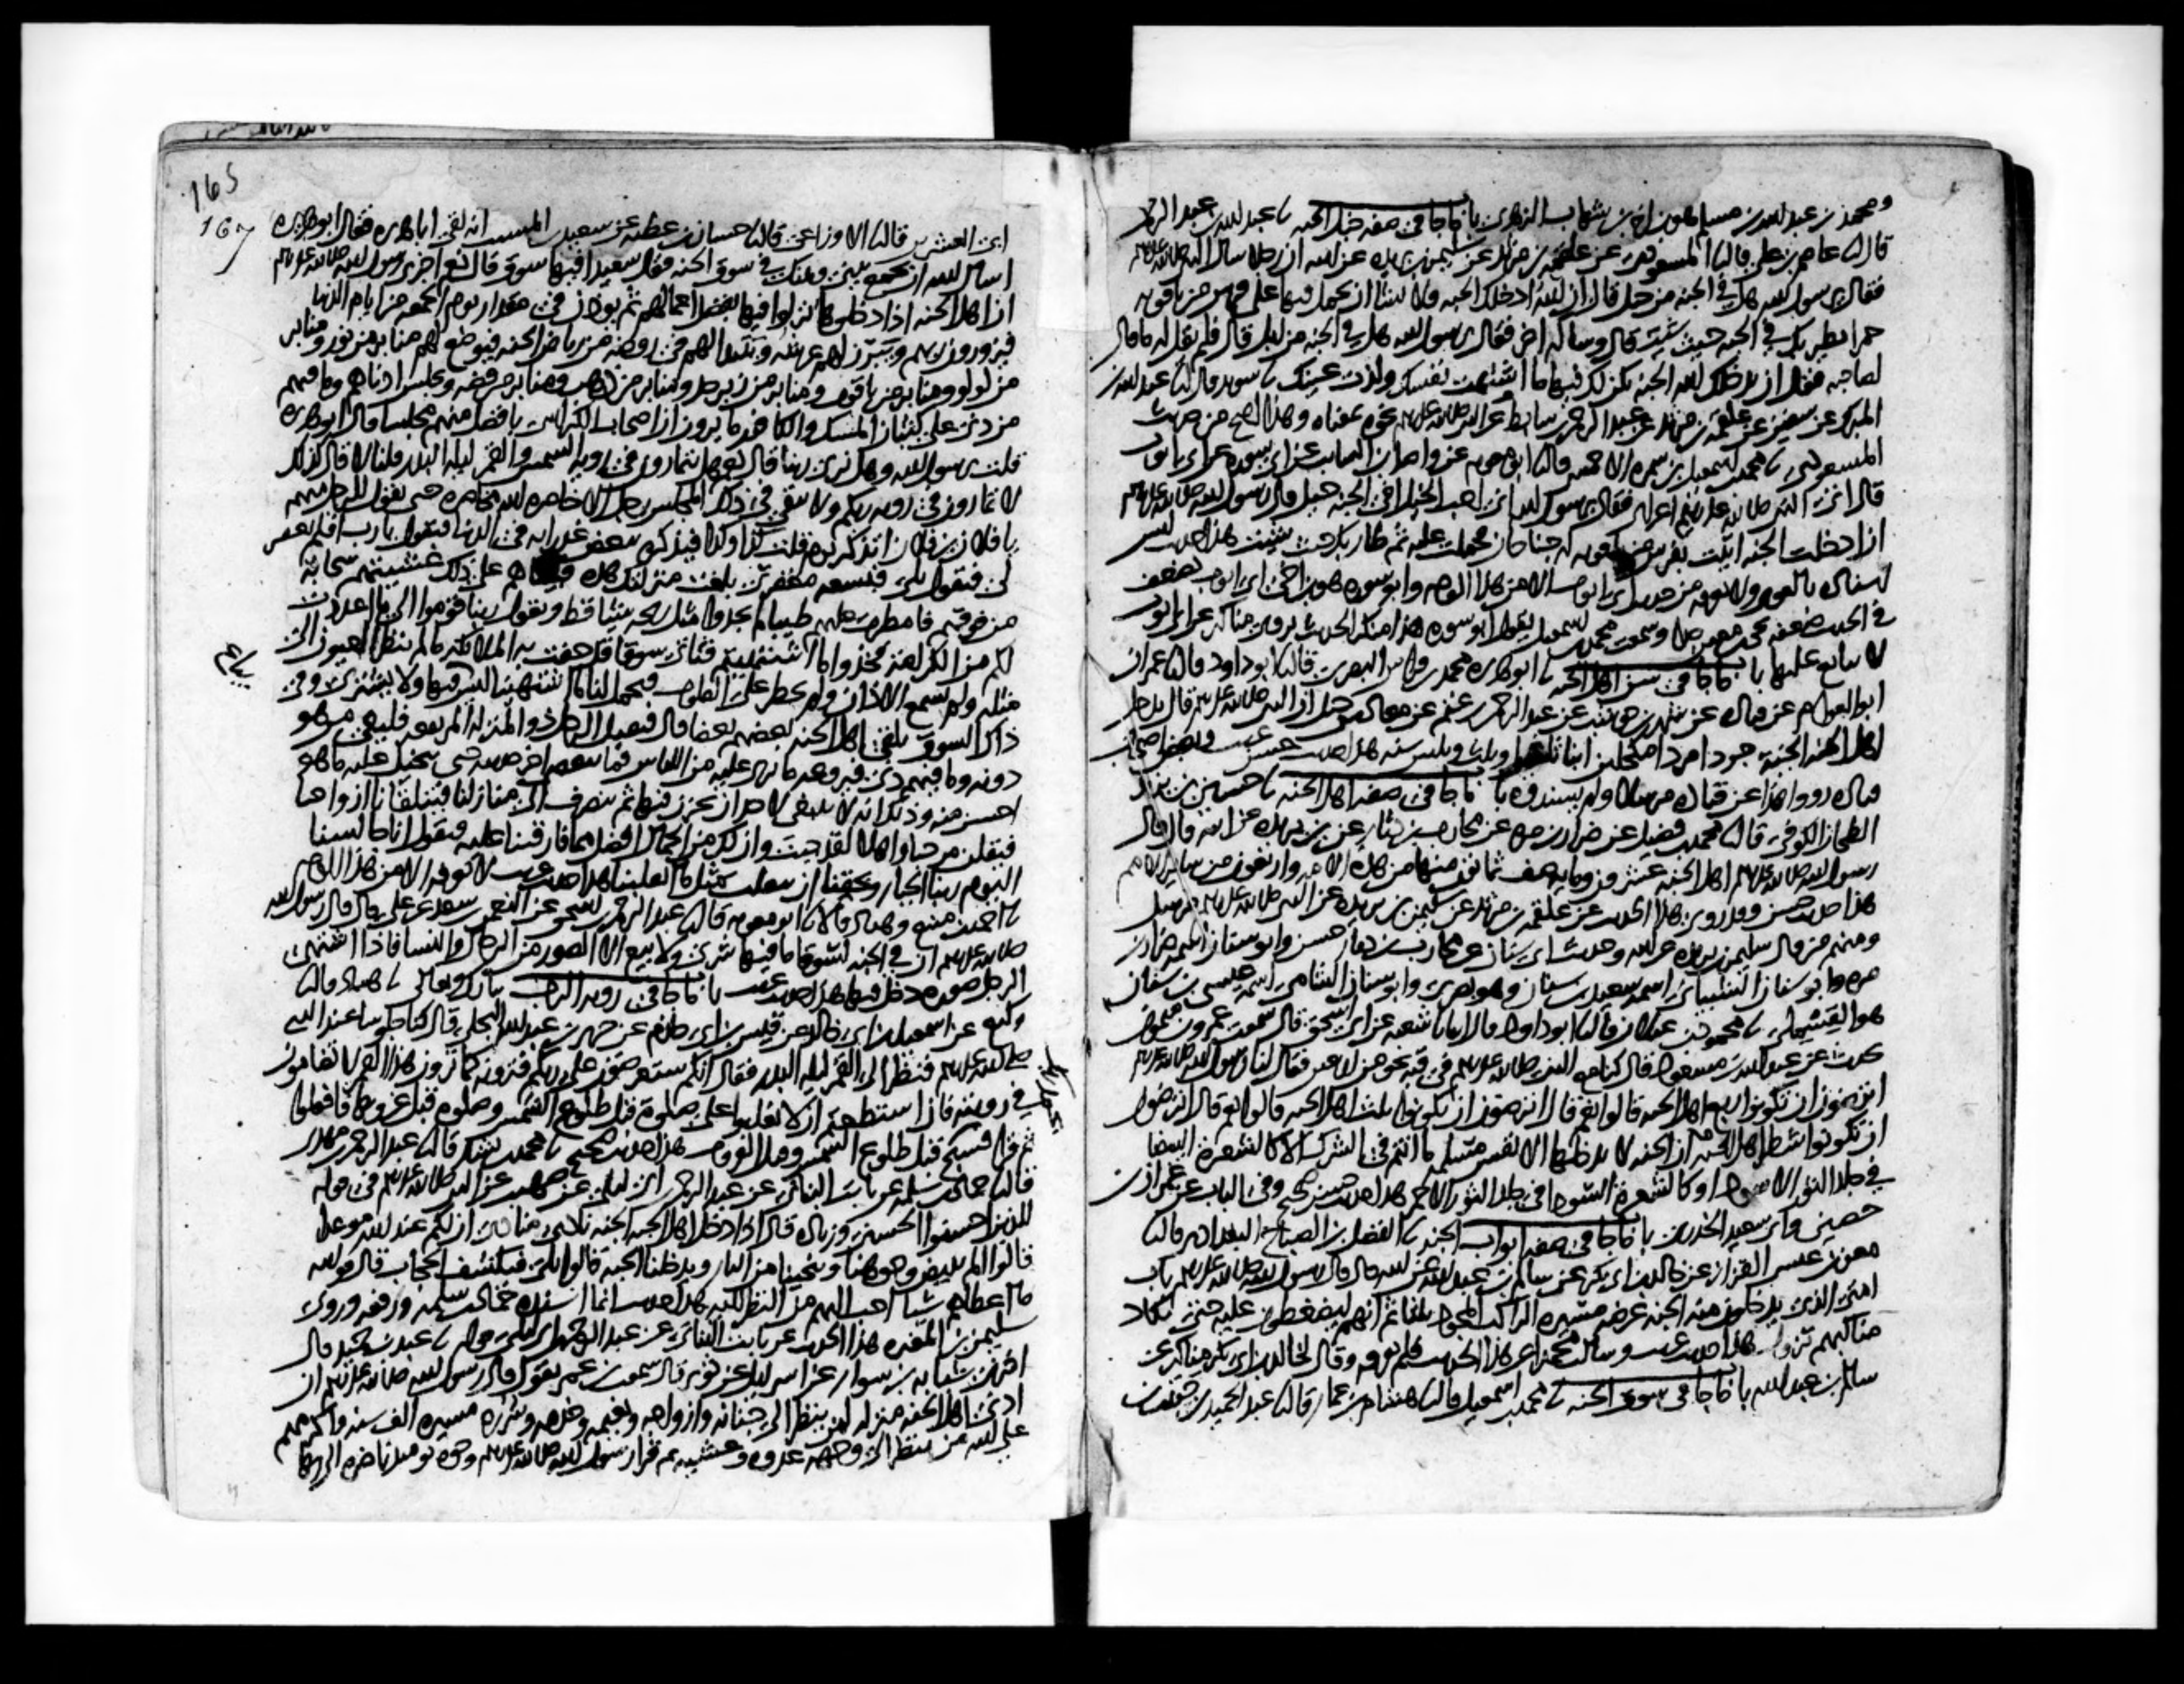 ومحمد بن عبد الله بن مسلم هو ابن اخي بن شهاب الزهري باب ما جا في صفه خيل الجنه نا عبد الله بن عبد الرحمن
قال نا عاصم بن علي قال نا المسعودي عن علقمه بن مرثد عن سليمن بن بريده عن ابيه ان رجلا سال النبي صلى الله عليه وسلم
فقال يرسول الله هل في الجنه من خيل قال ان الله ادخلك الجنه فلا تشا ان تحمل فيها على فرس من ياقوته
حمرا يطير بك في الجنه حيث شيت قال وساله اخر فقال يرسول الله هل في الجنه من ابل قال فلم يقل له ما قال
لصاحبه فقال ان يدخلك الله الجنه يكن لك فيها ما اشتهت نفسك ولذت عينك نا سويد قال نا عبد الله بن
المبرك عن سفين عن علقمه بن مرثد عن عبد الرحمن بن سابط عن النبي صلى الله عليه وسلم نحوه بمعناه وهذا اصح من حديث
المسعودي نا محمد بن اسمعيل بن سمره الاحمسي قال نا ابو معويه عن واصل بن السايب عن ابي سوره عن ابي ايوب
قال اتى النبي صلى الله عليه وسلم اعرابي فقال يرسول الله اني احب الخيل افي الجنه خيل قال رسول الله صلى الله عليه وسلم
ان ادخلت الجنه اتيت بفرس من ياقوته له جناحان فحملت عليه ثم طار بك حيث شيت هذا حديث ليس
اسناده بالقوي ولا نعرفه من حديث ابي ايوب الا من هذا الوجه وابو سوره هو ابن اخي ابي ايوب يضعف
في الحديث ضعفه يحيى بن معين جدا وسمعت محمد بن اسمعيل يقول ابو سوره هذا منكر الحديث يروي مناكير عن ابي ايوب
لا يتابع عليها باب ما جا في سن اهل الجنه نا ابو هريره محمد بن فراس البصري قال نا ابو داود قال نا عمران
ابو العوام عن قتاده عن شهر بن حوشب عن عبد الرحمن بن غنم عن معاذ بن جبل ان النبي صلى الله عليه وسلم قال يدخل
اهل الجنه الجنة جردا مردا مكحلين ابنا ثلثين او ثلث وثلثين سنه هذا حديث حسن غريب وبعض اصحاب
قتاده رووا هذا عن قتاده مرسلا ولم يسندوه باب ما جا في صف اهل الجنه نا حسين بن يزيد
الطحان الكوفي قال نا محمد بن فضيل عن ضرار بن مره عن محارب بن دثار عن بن بريده عن ابيه قال قال
رسول الله صلى الله عليه وسلم اهل الجنه عشرون ومايه صف ثمانون منها من هذه الامه واربعون من ساير الامم
هذا حديث حسن وقد روي هذا الحديث عن علقمه بن مرثد عن سليمن بن بريده عن النبي صلى الله عليه وسلم مرسل
ومنهم من قال سليمن بن بريده عن ابيه وحديث ابي سنان عن محارب بن دثار حسن وابو سنان اسمه ضرار بن
مره وابو سنان الشيباني اسمه سعيد بن سنان وهو بصري وابو سنان الشامي اسمه عيسى بن سنان
هو القسملي نا محمود بن غيلان قال نا ابو داود قال انبانا شعبه عن ابي اسحق قال سمعت عمرو بن ميمون
يحدث عن عبد الله بن مسعود قال كنا مع النبي صلى الله عليه وسلم في قبه نحو من اربعين فقال لنا رسول الله صلى الله عليه وسلم
اترضون ان تكونوا ربع اهل الجنه قالوا نعم قال اترضون ان تكونوا ثلث اهل الجنه قالوا نعم قال اترضون
ان تكونوا شطر اهل الجنه ان الجنه لا يدخلها الا نفس مسلمه ما انتم في الشرك الا كالشعره البيضا
في جلد الثور الاسود او كالشعره السودا في جلد الثور الاحمر هذا حديث حسن صحيح وفي الباب عن عمران بن
حصين وابي سعيد الخدري باب ما جا في صفه ابواب الجنه نا الفضل بن الصباح البغدادي قال نا
معن بن عيسى القزاز عن خالد بن ابي بكر عن سالم بن عبد الله عن ابيه قال قال رسول الله صلى الله عليه وسلم باب
امتي الذي يدخلون منه الجنه عرضه مسيره الراكب المجود ثلثا ثم انهم ليضغطون عليه حتى تكاد
مناكبهم تزول هذا حديث غريب وسالت محمدا عن هذا الحديث فلم يعرفه وقال لخالد بن ابي بكر مناكير عن
سالم بن عبد الله باب ما جا في سوق الجنه نا محمد بن اسمعيل قال نا هشام بن عمار قال نا عبد الحميد بن حبيب بن
165
167
ابي العشرين قال نا الاوزاعي قال نا حسان بن عطيه عن سعيد بن المسيب انه لقي ابا هريره فقال ابو هريره
اسال الله ان يجمع بيني وبينك في سوق الجنه فقال سعيد افيها سوق قال نعم اخبرني رسول الله صلى الله عليه وسلم
ان اهل الجنه اذا دخلوها نزلوا فيها بفضل اعمالهم ثم يوذن في مقدار يوم الجمعه من ايام الدنيا
فيزورون ربهم ويبرز لهم عرشه ويتبدا لهم في روضه من رياض الجنه فيوضع لهم منابر من نور ومنابر
من لولو ومنابر من ياقوت ومنابر من زبرجد ومنابر من ذهب ومنابر من فضه ويجلس ادناهم وما فيهم
من دني على كثبان المسك والكافور ما يرون ان اصحاب الكراسي بافضل منهم مجلسا قال ابو هريره
قلت يرسول الله وهل نرى ربنا قال نعم هل تتمارون في رويه الشمس والقمر ليله البدر قلنا لا قال كذلك
لا تمارون في رويه ربكم ولا يبقى في ذلك المجلس رجل الا حاضره الله محاضره حتى يقول للرجل منهم
يا فلان بن فلان اتذكر يوم قلت كذا وكذا فيذكره ببعض غدراته في الدنيا فيقول يا رب افلم تغفر
لي فيقول بلى فبسعه مغفرتي بلغت منزلتك هذه فبينا هم على ذلك غشيتهم سحابة
من فوقهم فامطرت عليهم طيبا لم يجدوا مثل ريحه شيا قط ويقول ربنا قوموا الى ما اعددت
لكم من الكرامه فخذوا ما اشتهيتم فناتي سوقا قد حفت به الملائكه ما لم تنظر العيون الى
مثله ولم تسمع الاذان ولم يخطر على القلوب فيحمل لنا ما اشتهينا ليس فيها ولا يشترى وفي
ذلك السوق يلقى اهل الجنه بعضهم بعضا قال فيقبل الرجل ذو المنزله المرتفعه فيلقى من هو
دونه وما فيهم دني فيروعه ما يرى عليه من اللباس فما ينقضي اخر حديثه حتى يتخيل عليه ما هو
احسن منه وذلك انه لا ينبغي لاحد ان يحزن فيها ثم ننصرف الى منازلنا فتتلقانا ازواجنا
فيقلن مرحبا واهلا لقد جيت وان لك من الجمال افضل مما فارقتنا عليه فيقول انا جالسنا
اليوم ربنا الجبار ويحقنا ان ننقلب بمثل ما انقلبنا هذا حديث غريب لا نعرفه الا من هذا الوجه
نا احمد بن منيع وهناد قالا نا ابو معويه قال نا عبد الرحمن بن اسحق عن النعمن بن سعد عن علي قال قال رسول الله
صلى الله عليه وسلم ان في الجنه لسوقا ما فيها شرى ولا بيع الا الصور من الرجال والنسا فاذا اشتهى
الرجل صوره دخل فيها هذا حديث غريب باب ما جا في رويه الرب تبارك وتعالى نا هناد قال نا
وكيع عن اسمعيل بن ابي خالد عن قيس بن ابي حازم عن جرير بن عبد الله البجلي قال كنا جلوسا عند النبي
صلى الله عليه وسلم فنظر الى القمر ليله البدر فقال انكم ستعرضون على ربكم فترونه كما ترون هذا القمر لا تضامون
في رويته فان استطعتم ان لا تغلبوا على صلوة قبل طلوع الشمس وصلوه قبل غروبها فافعلوا
ثم قرا فسبح قبل طلوع الشمس وقبل الغروب هذا حديث صحيح نا محمد بن بشار قال نا عبد الرحمن بن مهدي
قال نا حماد بن سلمه عن ثابت البناني عن عبد الرحمن بن ابي ليلى عن صهيب عن النبي صلى الله عليه وسلم في قوله
للذين احسنوا الحسنى وزياده قال اذا دخل اهل الجنه الجنه نادى مناد ان لكم عند الله موعدا
قالوا الم يبيض وجوهنا وينجينا من النار ويدخلنا الجنه قالوا بلى فيكشف الحجاب قال فوالله
ما اعطاهم شيا احب اليهم من النظر اليه هذا حديث انما اسنده حماد بن سلمه ورفعه وروى
سليمن بن المغيره هذا الحديث عن ثابت البناني عن عبد الرحمن بن ابي ليلى قوله نا عبد بن حميد قال
اخبرني شبابه بن سوار عن اسرايل عن ثوير قال سمعت بن عمر يقول قال رسول الله صلى الله عليه وسلم ان
ادنى اهل الجنه منزله لمن ينظر الى جنانه وازواجه ونعيمه وخدمه وسرره مسيره الف سنه واكرمهم
على الله من ينظر الى وجهه غدوه وعشيه ثم قرا رسول الله صلى الله عليه وسلم وجوه يوميذ ناضره الى ربها